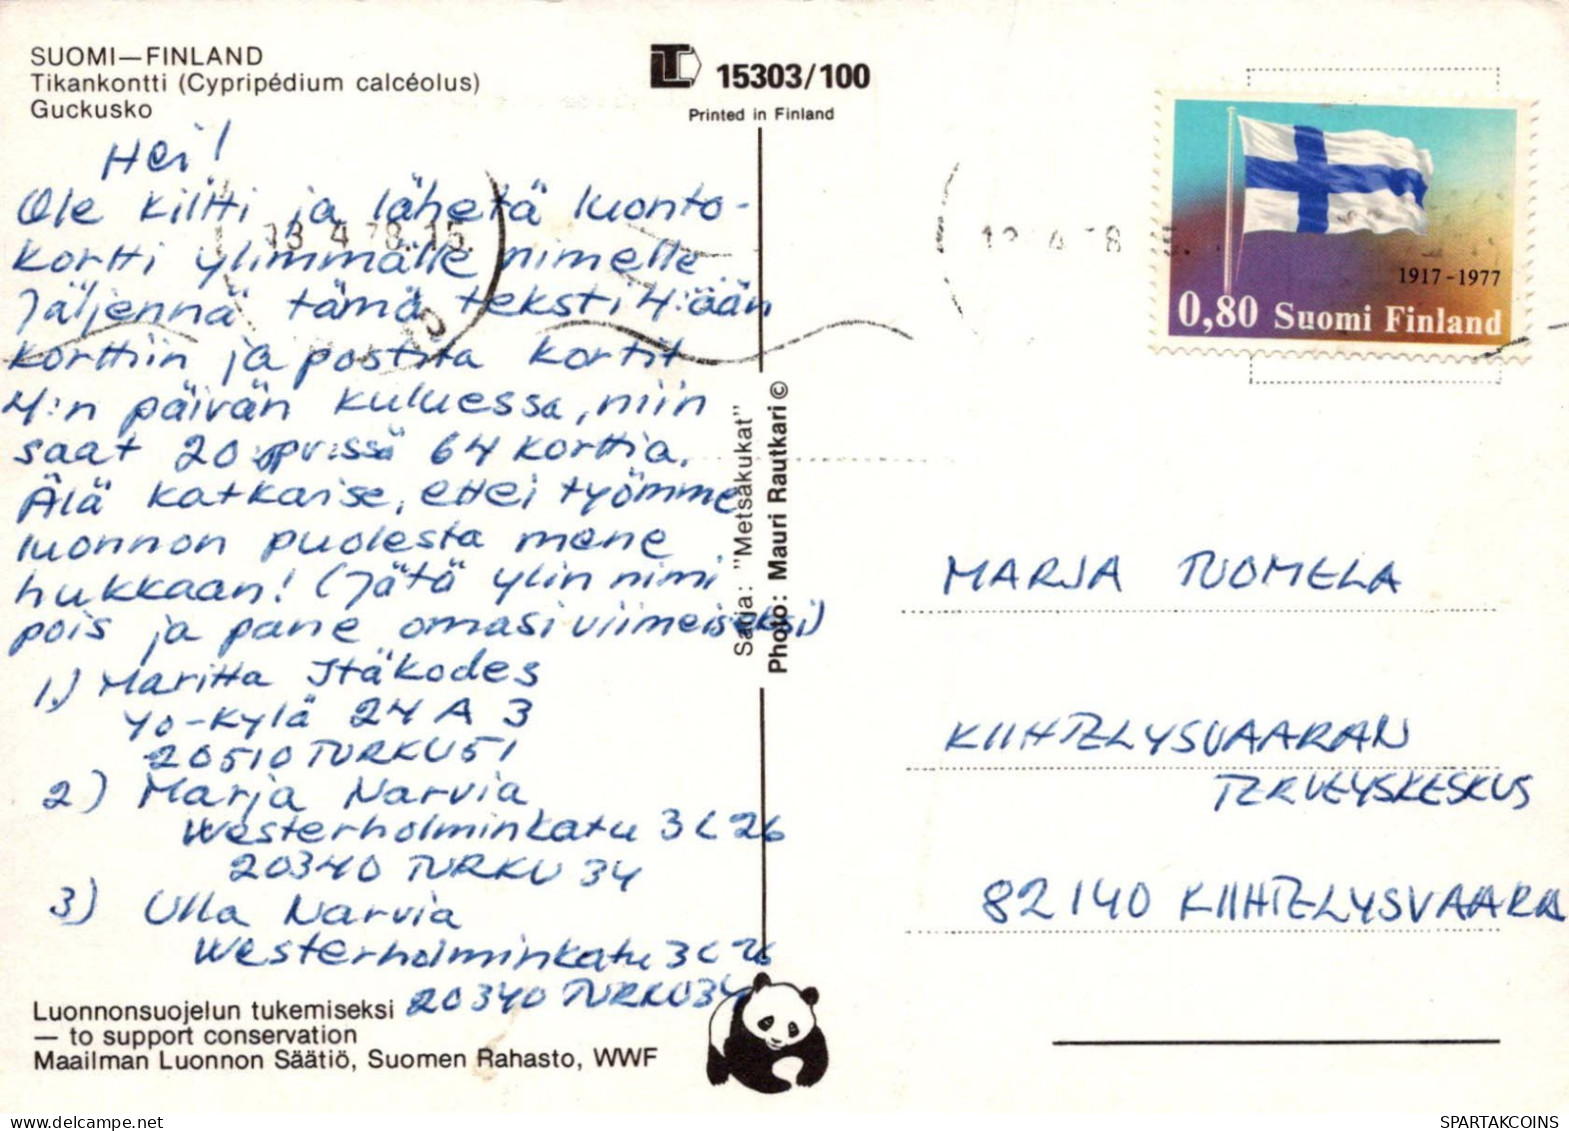 SUOMI—FINLAND
Tikankontti (Cypripédium calcéolus)
Guckusko
Hei!
Ole kiltti ja lähetä luonto-
kortti ylimmälle nimelle
Jäljennä tämä teksti 4:ään
korttiin ja postita kortit
4:n päivän kuluessa, niin
saat 20 pv:ssä 64 korttia.
Älä katkaise, ettei työmme
luonnon puolesta mene
hukkaan! (Jätä ylin nimi
pois ja pane omasi viimeiseksi)
1.) Maritta Itäkodes
Yo-kylä 24 A 3
20510 TURKU 51
2) Marja Narvia
Westerholminkatu 3 C 26
20340 TURKU 34
3) Ulla Narvia
Westerholminkatu 3 C 26
20340 TURKU 34
Luonnonsuojelun tukemiseksi
— to support conservation
Maailman Luonnon Säätiö, Suomen Rahasto, WWF
15303/100
Printed in Finland
Sarja: "Metsäkukat"
Photo: Mauri Rautkari ©
13.4.78.15.
1917-1977
0,80 Suomi Finland
MARJA TUOMELA
KIIHTELYSVAARAN
TERVEYSKESKUS
82140 KIIHTELYSVAARA
SPARTAKCOINS